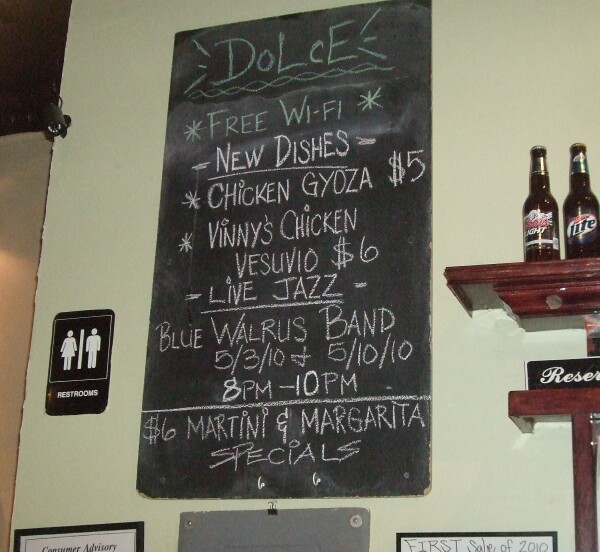 DOLCE
* FREE WI-FI *
- NEW DISHES -
* CHICKEN GYOZA $5
* VINNY'S CHICKEN
VESUVIO $6
- LIVE JAZZ -
BLUE WALRUS BAND
5/3/10 & 5/10/10
8PM - 10PM
$6 MARTINI & MARGARITA
SPECIALS
RESTROOMS
LIGHT
Lite
Reser
Consumer Advisory
FIRST Sale of 2010